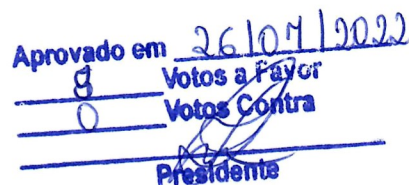 Aprovado em 26/07/2022
8 Votos a Favor
0 Votos Contra
Presidente